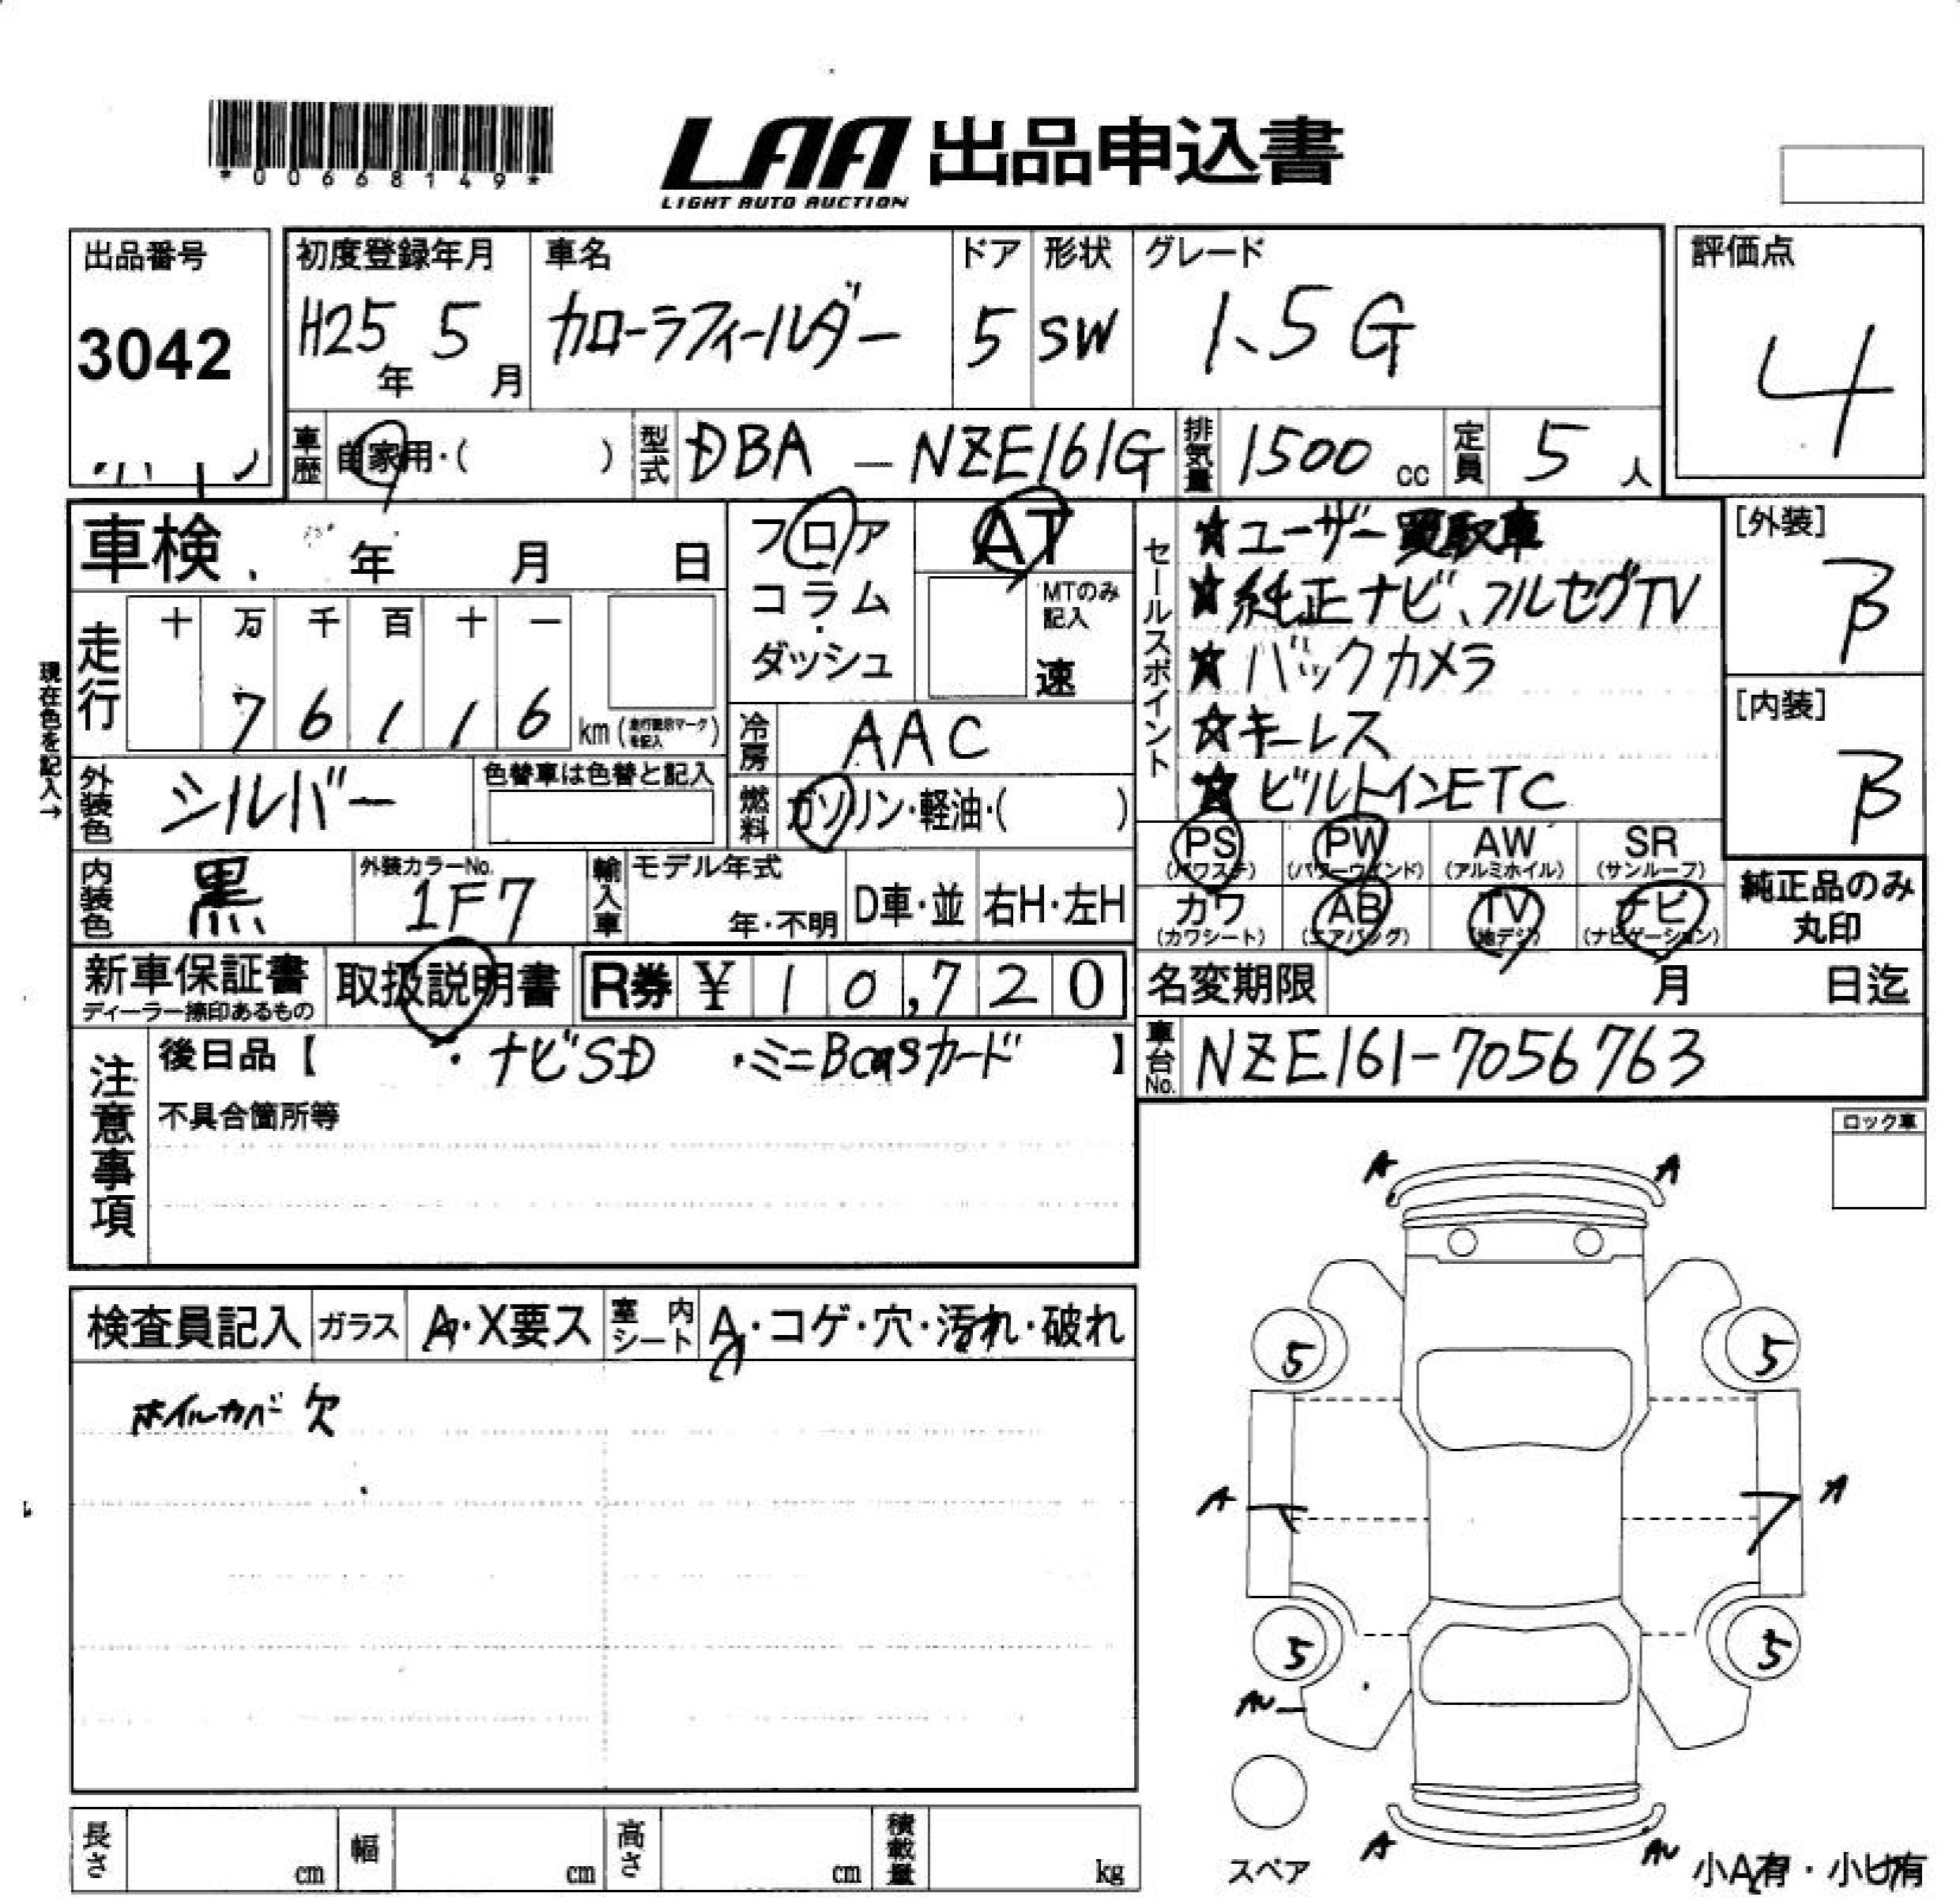 *00668149*
LAA 出品申込書
LIGHT AUTO AUCTION
出品番号
3042
初度登録年月
H25年 5月
車名
カローラフィールダー
ドア
5
形状
SW
グレード
1.5G
評価点
4
車歴 自家用・( )
型式 DBA-NZE161G
排気量 1500 cc
定員 5 人
車検 年 月 日
現在色を記入→
走行
十 万 千 百 十 一
7 6 1 1 6 km(走行表示マークを記入)
フロア
コラム
・
ダッシュ
AT
MTのみ記入
速
冷房 AAC
燃料 ガソリン・軽油・( )
セールスポイント
★ユーザー買取車
★純正ナビ、フルセグTV
★バックカメラ
☆キーレス
★ビルトインETC
[外装]
B
[内装]
B
外装色 シルバー
色替車は色替と記入
内装色 黒
外装カラーNo.
1F7
輸入車 モデル年式
年・不明
D車・並 右H・左H
PS (パワステ)
PW (パワーウインド)
AW (アルミホイル)
SR (サンルーフ)
カワ (カワシート)
AB (エアバッグ)
TV (地デジ)
ナビ (ナビゲーション)
純正品のみ
丸印
新車保証書
ディーラー捺印あるもの
取扱説明書
R券 ¥ 10,720
名変期限 月 日迄
車台No. NZE161-7056763
注意事項
後日品【 ・ナビSD ・ミニBcasカード 】
不具合箇所等
ロック車
検査員記入 ガラス A・X要ス 室内シート A・コゲ・穴・汚れ・破れ
ホイルカバー 欠
A A
5 5
A A
5 5
AU
スペア
A AU
小A有・小U有
長さ cm 幅 cm 高さ cm 積載量 kg